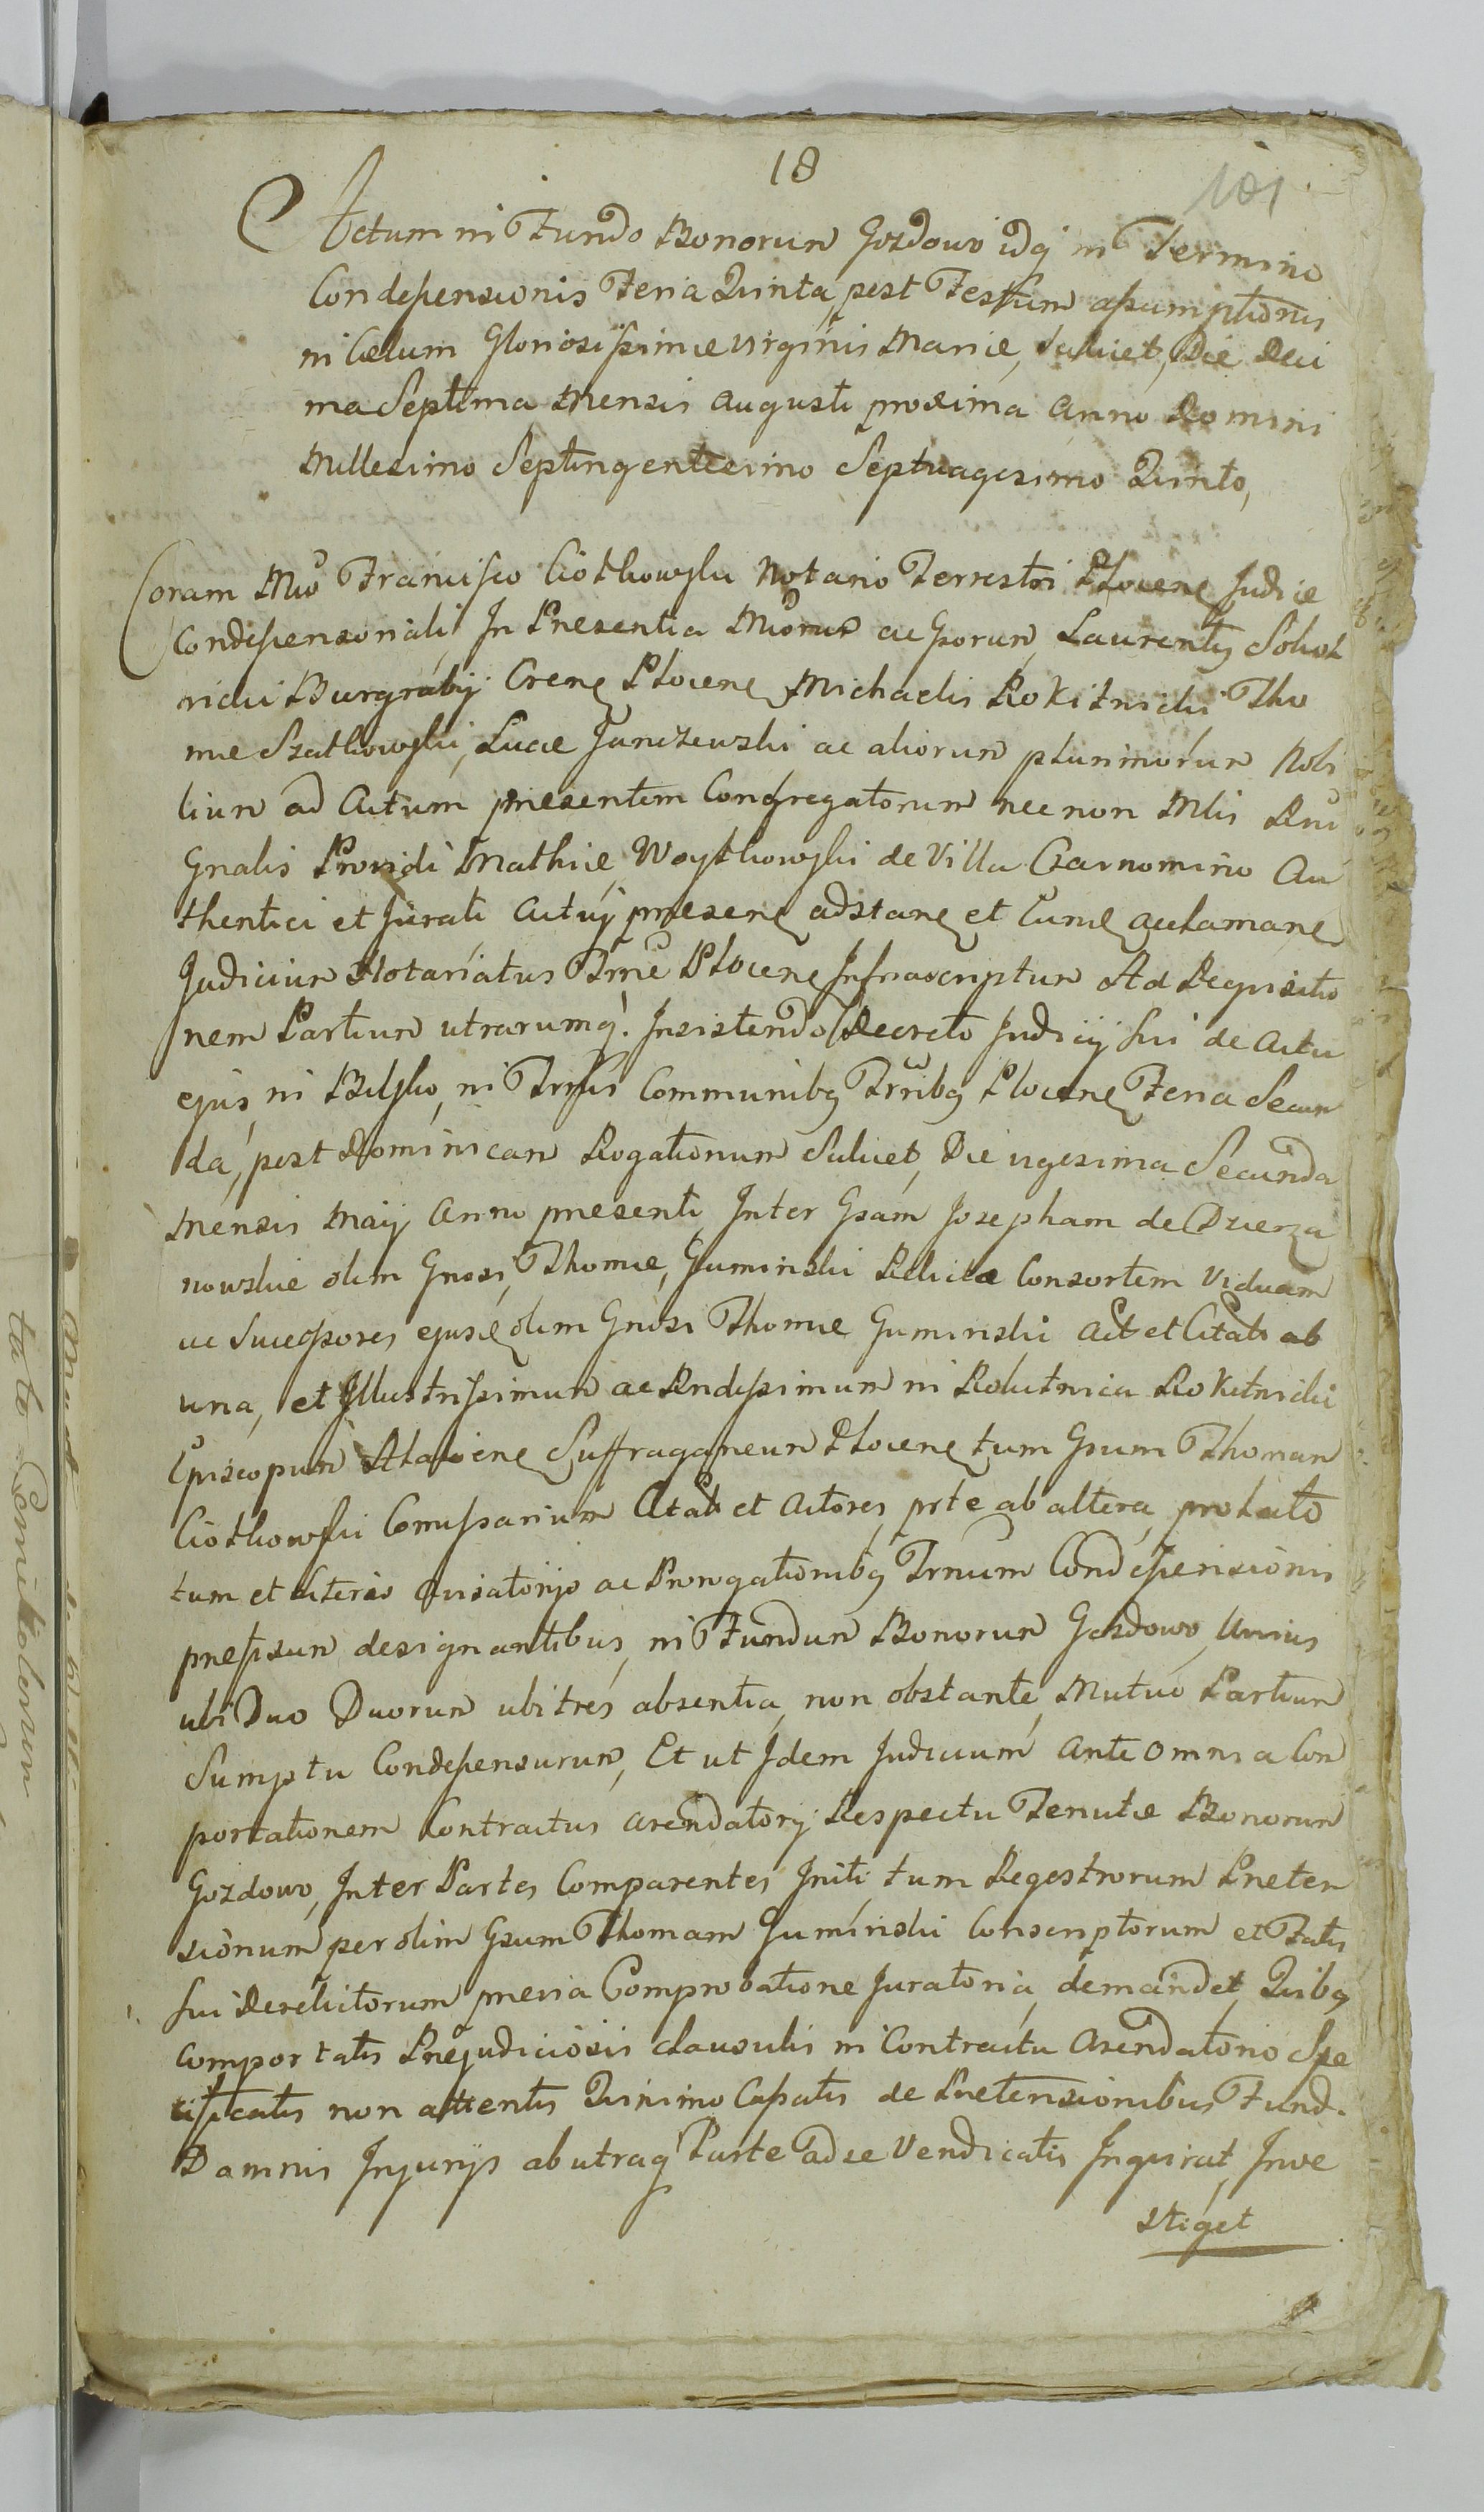 18
101
Actum in Fundo Bonorum Gozdowo idq in Termino
Condescensionis Feria Quinta, post Festum assumptionis
in Cælum Gloriosissimæ virginis Mariæ, Scilicet, Die deci
ma Septima Mensis augusti proxima anno Domini
Millesimo Septingentesimo Septuagesimo Quinto,
Coram Mco Francisco Ciołkowski Notario Terrestri Plocens Judice
Condescensoriali, In Presentia Mcorum ac Gsorum, Laurentij Sokol
nicki Burgrabij Crens Plocens Michaelis Rokitnicki Tho
mæ Szatkowski, Lucæ Junczewski ac aliorum plurimorum Nobi
lium ad Actum presentem Congregatorum nec non Mlis Rni
Gnalis Providi Mathiæ Woytkowski de Villa Czarnomino Au
thentici et Jurati actui presens adstans et acclamans
Judicium Notariatus Trre Plocens Infrascriptum Ad Requisitio
nem Partium utrarumq. Insistendo Decreto Judicij sui de Actu
ejus, in Bielsko, in Trmis Communibq Trribq Plocens Feria Secun
da, post Dominicam Rogationum Scilicet, Die vigesima Secunda
Mensis Maij Anno presenti Inter Gsam Josepham de Dzierza
nowskie olim Gnosi, Thomæ, Guminski Relictæ Consortem Viduam
ac Successores ejusd olim Gnosi Thomæ Guminski Act et Citat ab
una, et Illustrissimum ac Rndissimum in Rokitnica Rokitnicki
Episcopum Suffraganeum Plocens tum Gsum Thomam
Ciołkowski Comissarium Citat et Actores, prte ab altera, prolato
tum et Literis Innotorijs ac Prorogationibq Trnum Condescensionis
prefixum designantibus, in Fundum Bonorum Gozdowo, Unius
ubi Duo Duorum ubi tres absentia, non obstante, Mutuo Partium
Sumptu Condescensurum, Et ut Idem Judicium ante omnia Com
portationem Contractus arendatorij Respectu Tenutæ Bonorum
Gozdowo, Inter Partes Comparentes Initi, tum Regestrorum Preten
sionum per olim Gsum Thomam Guminski Conscriptorum et Fatis
sui Derelictorum previa Comprobatione Juratoria, demandet, Quibq
comportatis Prejudiciosis clausulis in Contractu arendatorio Spe
cificatis non attentis Quinimo Cassatis de Pretensionibus Fund.
Damnis Injurijs ab utraq Parte ad se Vendicatis Inquirat, Inve
stiget